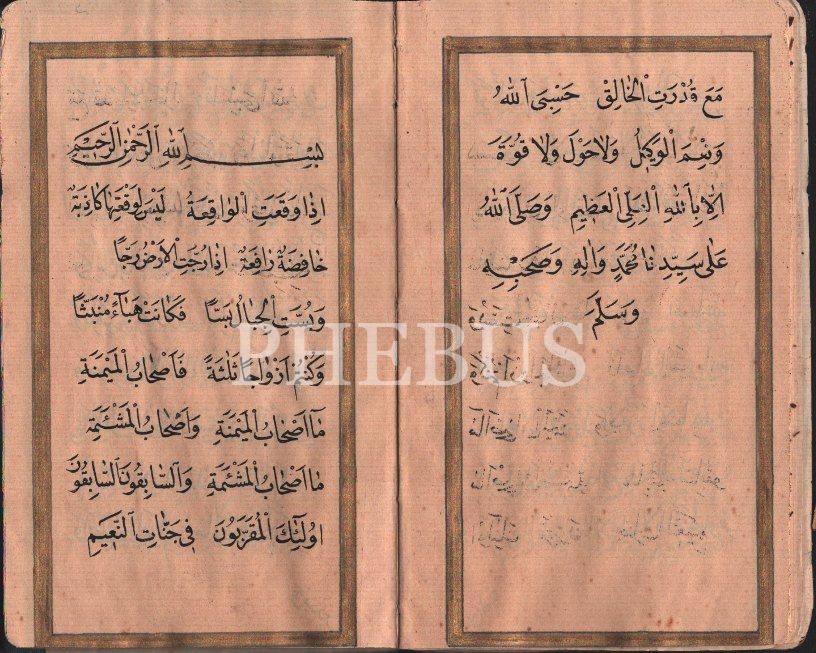 مَعَ قُدْرَتِ الْخَالِقِ حَسْبِيَ اللّٰهُ
وَنِعْمَ الْوَكِيلُ وَلَا حَوْلَ وَلَا قُوَّةَ
اِلَّا بِاللّٰهِ الْعَلِيِّ الْعَظِيمِ وَصَلَّى اللّٰهُ
عَلٰى سَيِّدِنَا مُحَمَّدٍ وَاٰلِهِ وَصَحْبِهِ
وَسَلَّمَ
بِسْمِ اللّٰهِ الرَّحْمٰنِ الرَّحِيمِ
اِذَا وَقَعَتِ الْوَاقِعَةُ لَيْسَ لِوَقْعَتِهَا كَاذِبَةٌ
خَافِضَةٌ رَافِعَةٌ اِذَا رُجَّتِ الْاَرْضُ رَجًّا
وَبُسَّتِ الْجِبَالُ بَسًّا فَكَانَتْ هَبَاءً مُنْبَثًّا
وَكُنْتُمْ اَزْوَاجًا ثَلٰثَةً فَاَصْحَابُ الْمَيْمَنَةِ
مَا اَصْحَابُ الْمَيْمَنَةِ وَاَصْحَابُ الْمَشْئَمَةِ
مَا اَصْحَابُ الْمَشْئَمَةِ وَالسَّابِقُونَ السَّابِقُونَ
اُولٰئِكَ الْمُقَرَّبُونَ فِي جَنَّاتِ النَّعِيمِ
PHEBUS